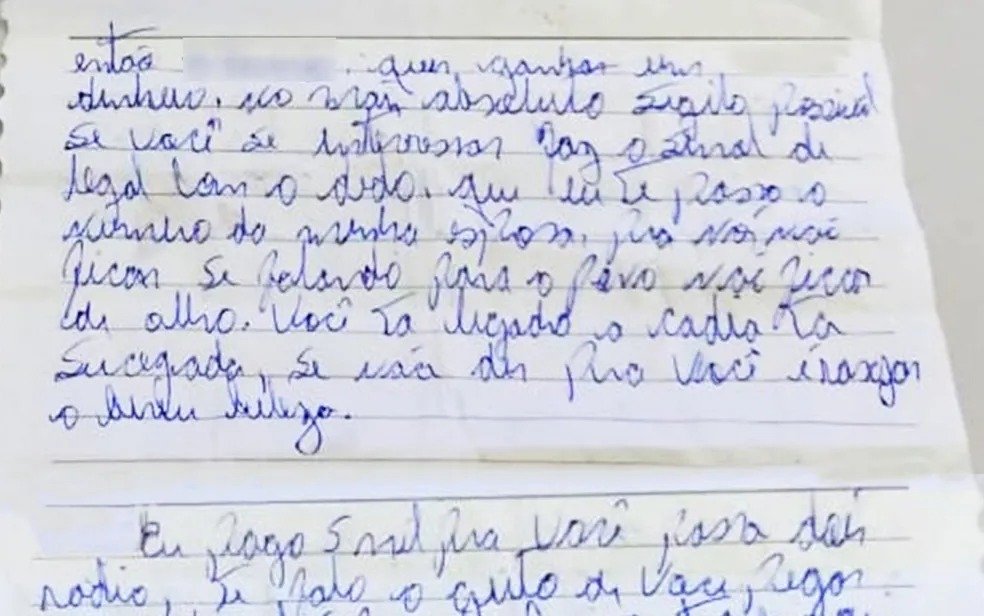 então quer ganhar um
dinhero. no maø absoluto sigilo possivel
se você se interessar faz o sinal de
legal com o dedo. que eu te passo o
numero da minha esposa. pra nós não
ficar se falando para o povo não ficar
de olho. Você ta ligado a cadia ta
sucegada, se não der pra você é rasgar
o beleza.
Eu pago 5 mil pra você passa dois
radio, te falo o geito de você pegar